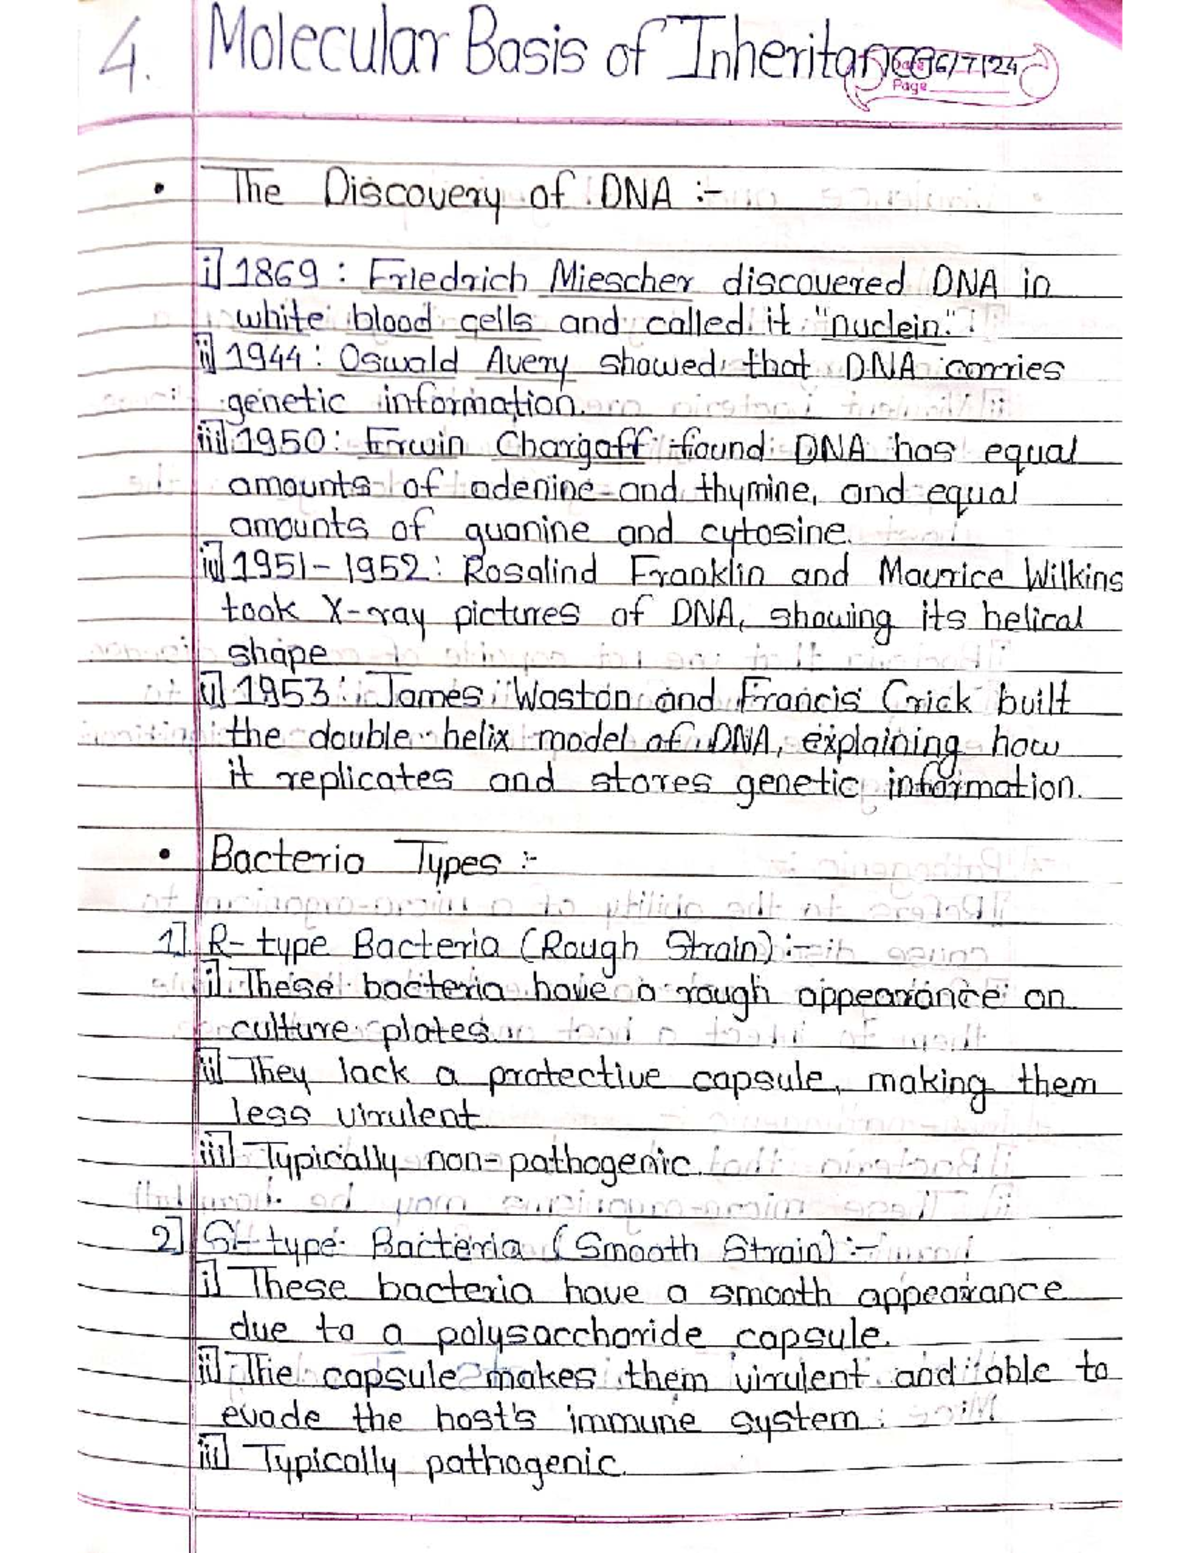 4. Molecular Basis of Inheritance
Date 16/7/24
Page
• The Discovery of DNA :-
i] 1869 : Friedrich Miescher discovered DNA in
white blood cells and called it "nuclein."
ii] 1944 : Oswald Avery showed that DNA carries
genetic information.
iii] 1950 : Erwin Chargaff found DNA has equal
amounts of adenine and thymine, and equal
amounts of guanine and cytosine.
iv] 1951-1952 : Rosalind Franklin and Maurice Wilkins
took X-ray pictures of DNA, showing its helical
shape
v] 1953 : James Waston and Francis Crick built
the double helix model of DNA, explaining how
it replicates and stores genetic information.
• Bacteria Types :-
1] R-type Bacteria (Rough Strain) :-
i] These bacteria have a rough appearance on
culture plates.
ii] They lack a protective capsule, making them
less virulent
iii] Typically non-pathogenic.
2] S-type Bacteria (Smooth Strain) :-
i] These bacteria have a smooth appearance
due to a polysaccharide capsule.
ii] The capsule makes them virulent and able to
evade the host's immune system.
iii] Typically pathogenic.